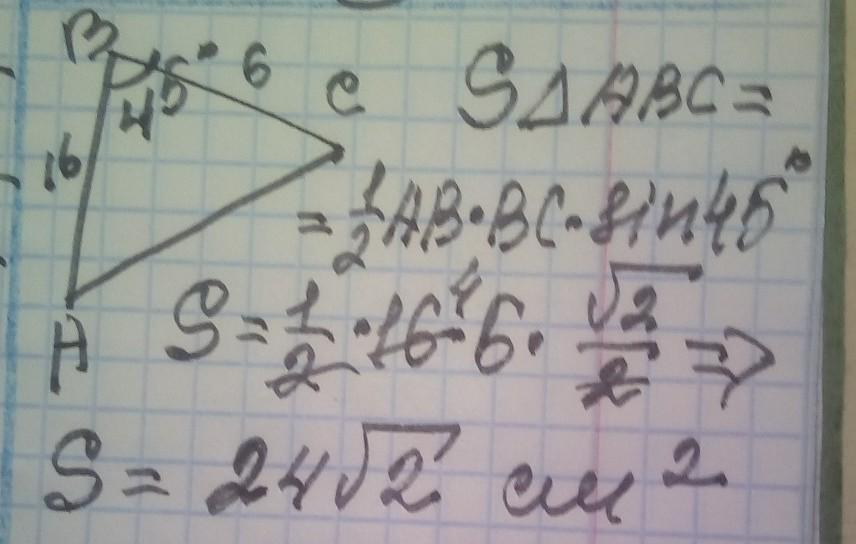 B 45° 6 C
16
A
S△ABC=
=½AB·BC·sin45°
S=½·16⁴·6·√2/2 ⇒
S= 24√2 см²